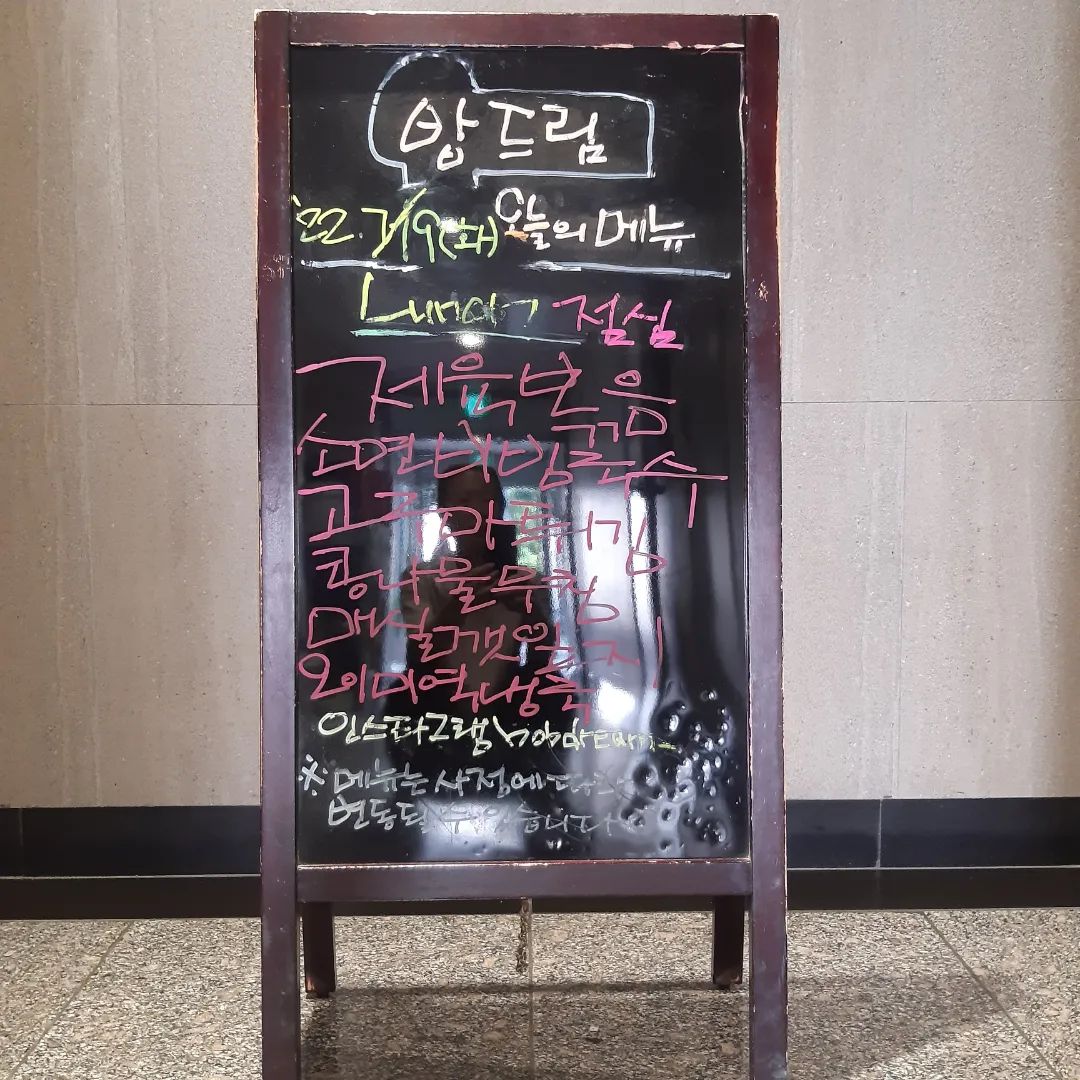 밥드림
'22. 7/19(화) 오늘의 메뉴
Lunch 점심
제육볶음
소면비빔국수
고구마튀김
콩나물무침
매실깻잎지
오이미역냉국
인스타그램
※ 메뉴는 사정에 따라
변동될 수 있습니다